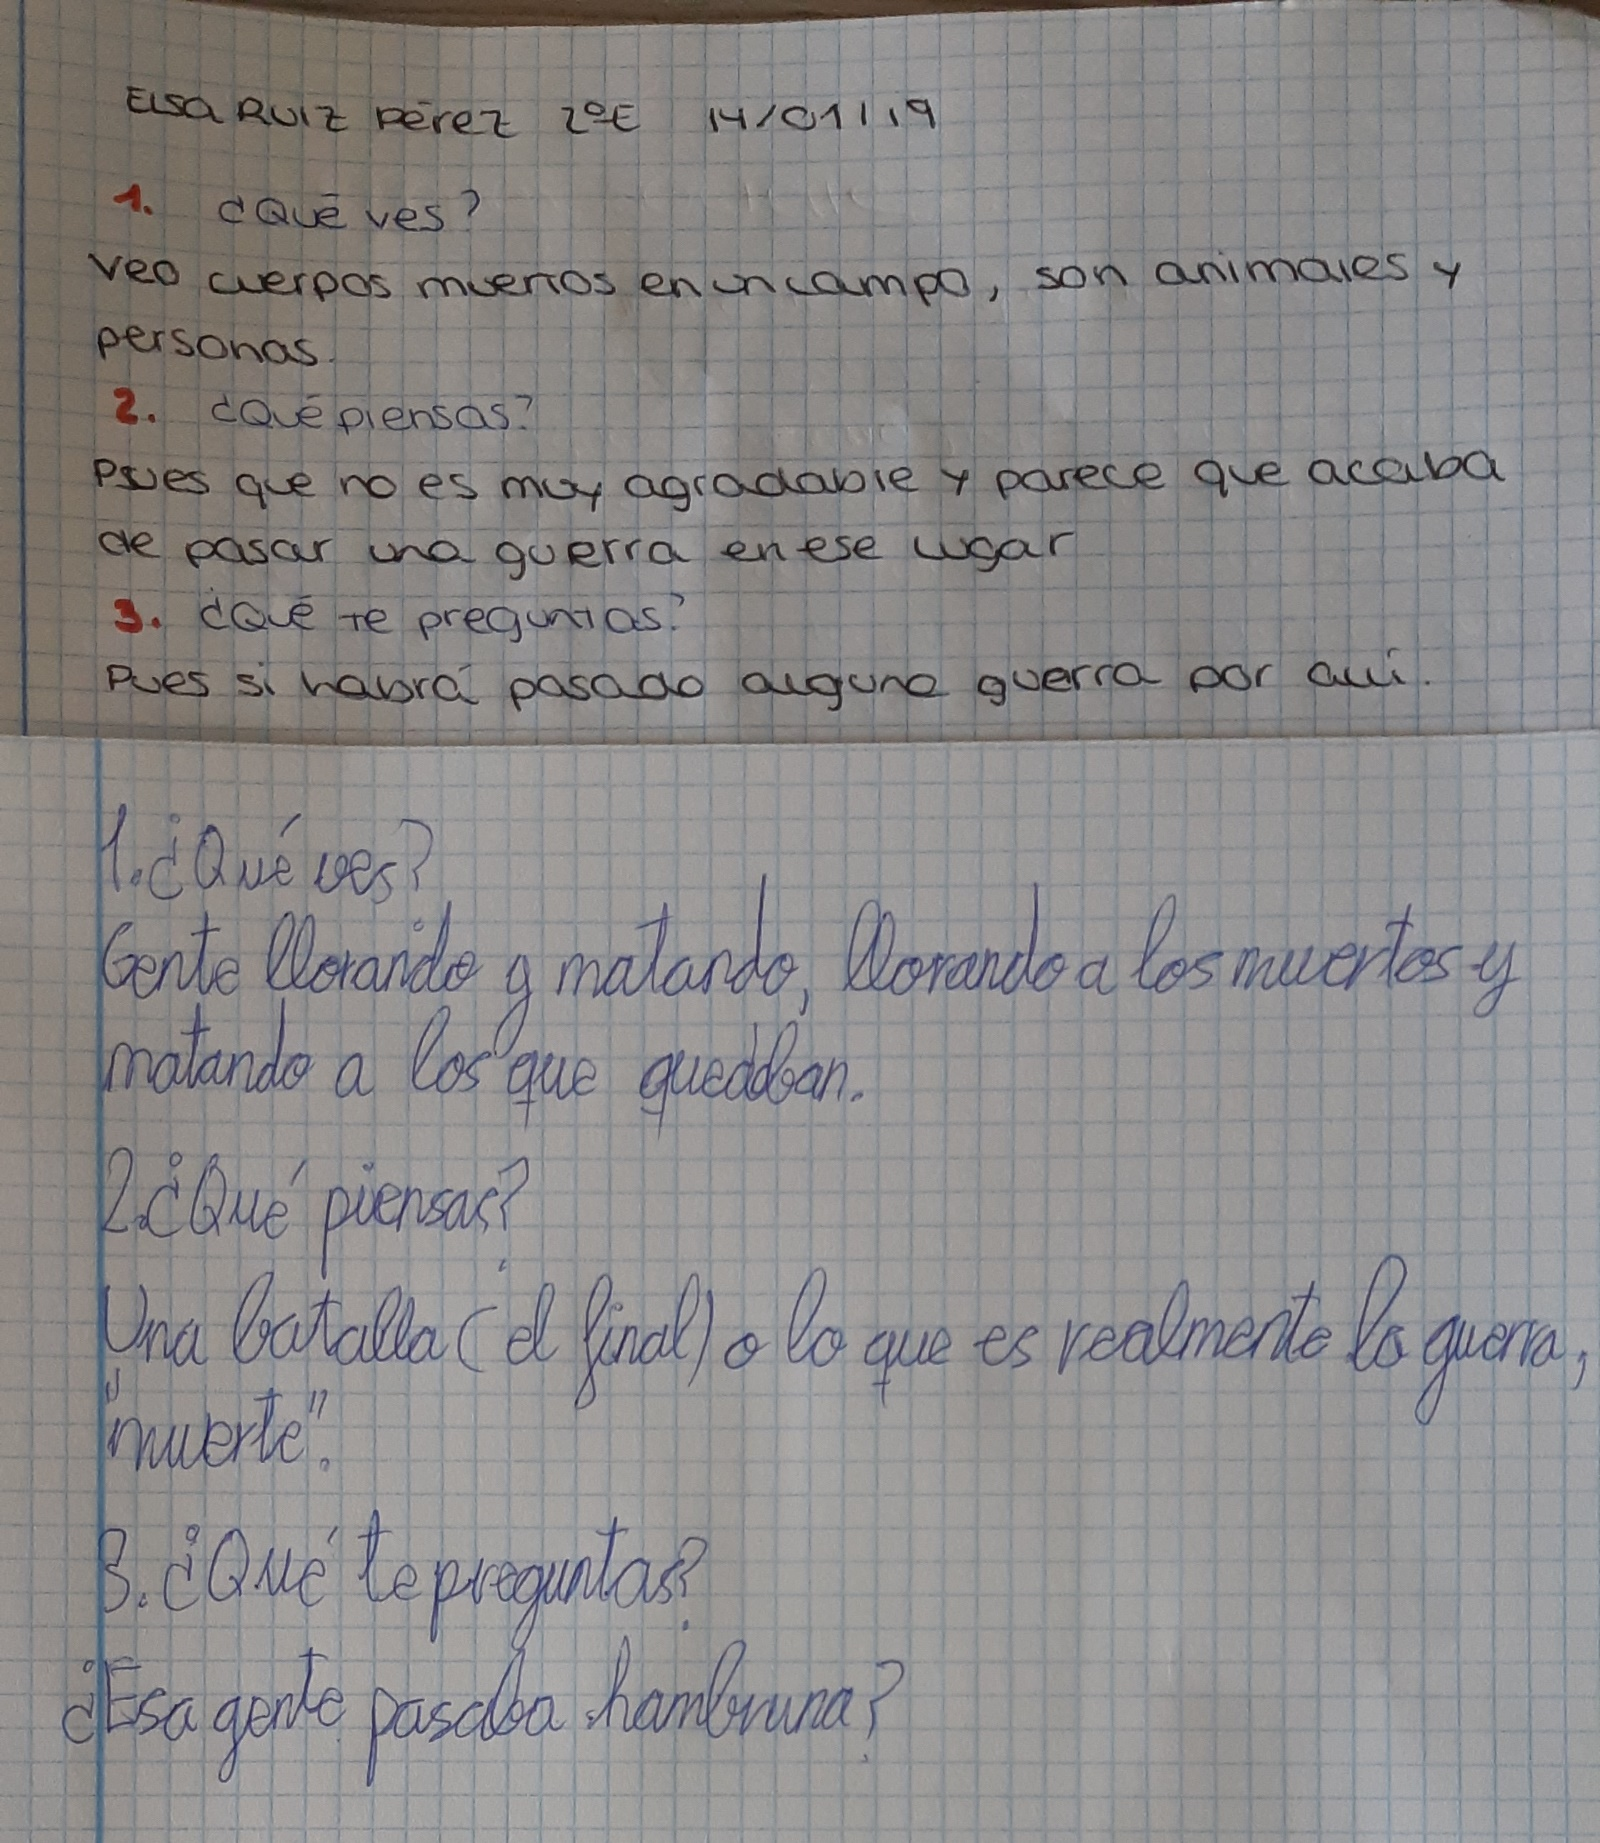 Elsa Ruiz Pérez 2ºE 14/01/19
1. ¿Qué ves?
Veo cuerpos muertos en un campo, son animales y
personas.
2. ¿Qué piensas?
Pues que no es muy agradable y parece que acaba
de pasar una guerra en ese lugar
3. ¿Qué te preguntas?
Pues si habrá pasado alguna guerra por allí.
1. ¿Qué ves?
Gente llorando y matando, llorando a los muertos y
matando a los que quedaban.
2. ¿Qué piensas?
Una batalla (el final) o lo que es realmente la guerra,
"muerte".
3. ¿Qué te preguntas?
¿Esa gente pasaba hambruna?